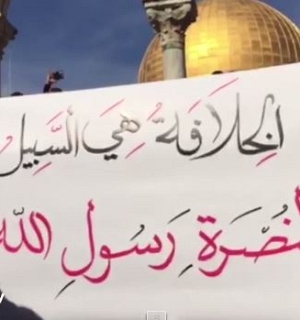 الخِلَافَةُ هِيَ السَّبِيل
لنُصْرَةِ رَسُولِ الله